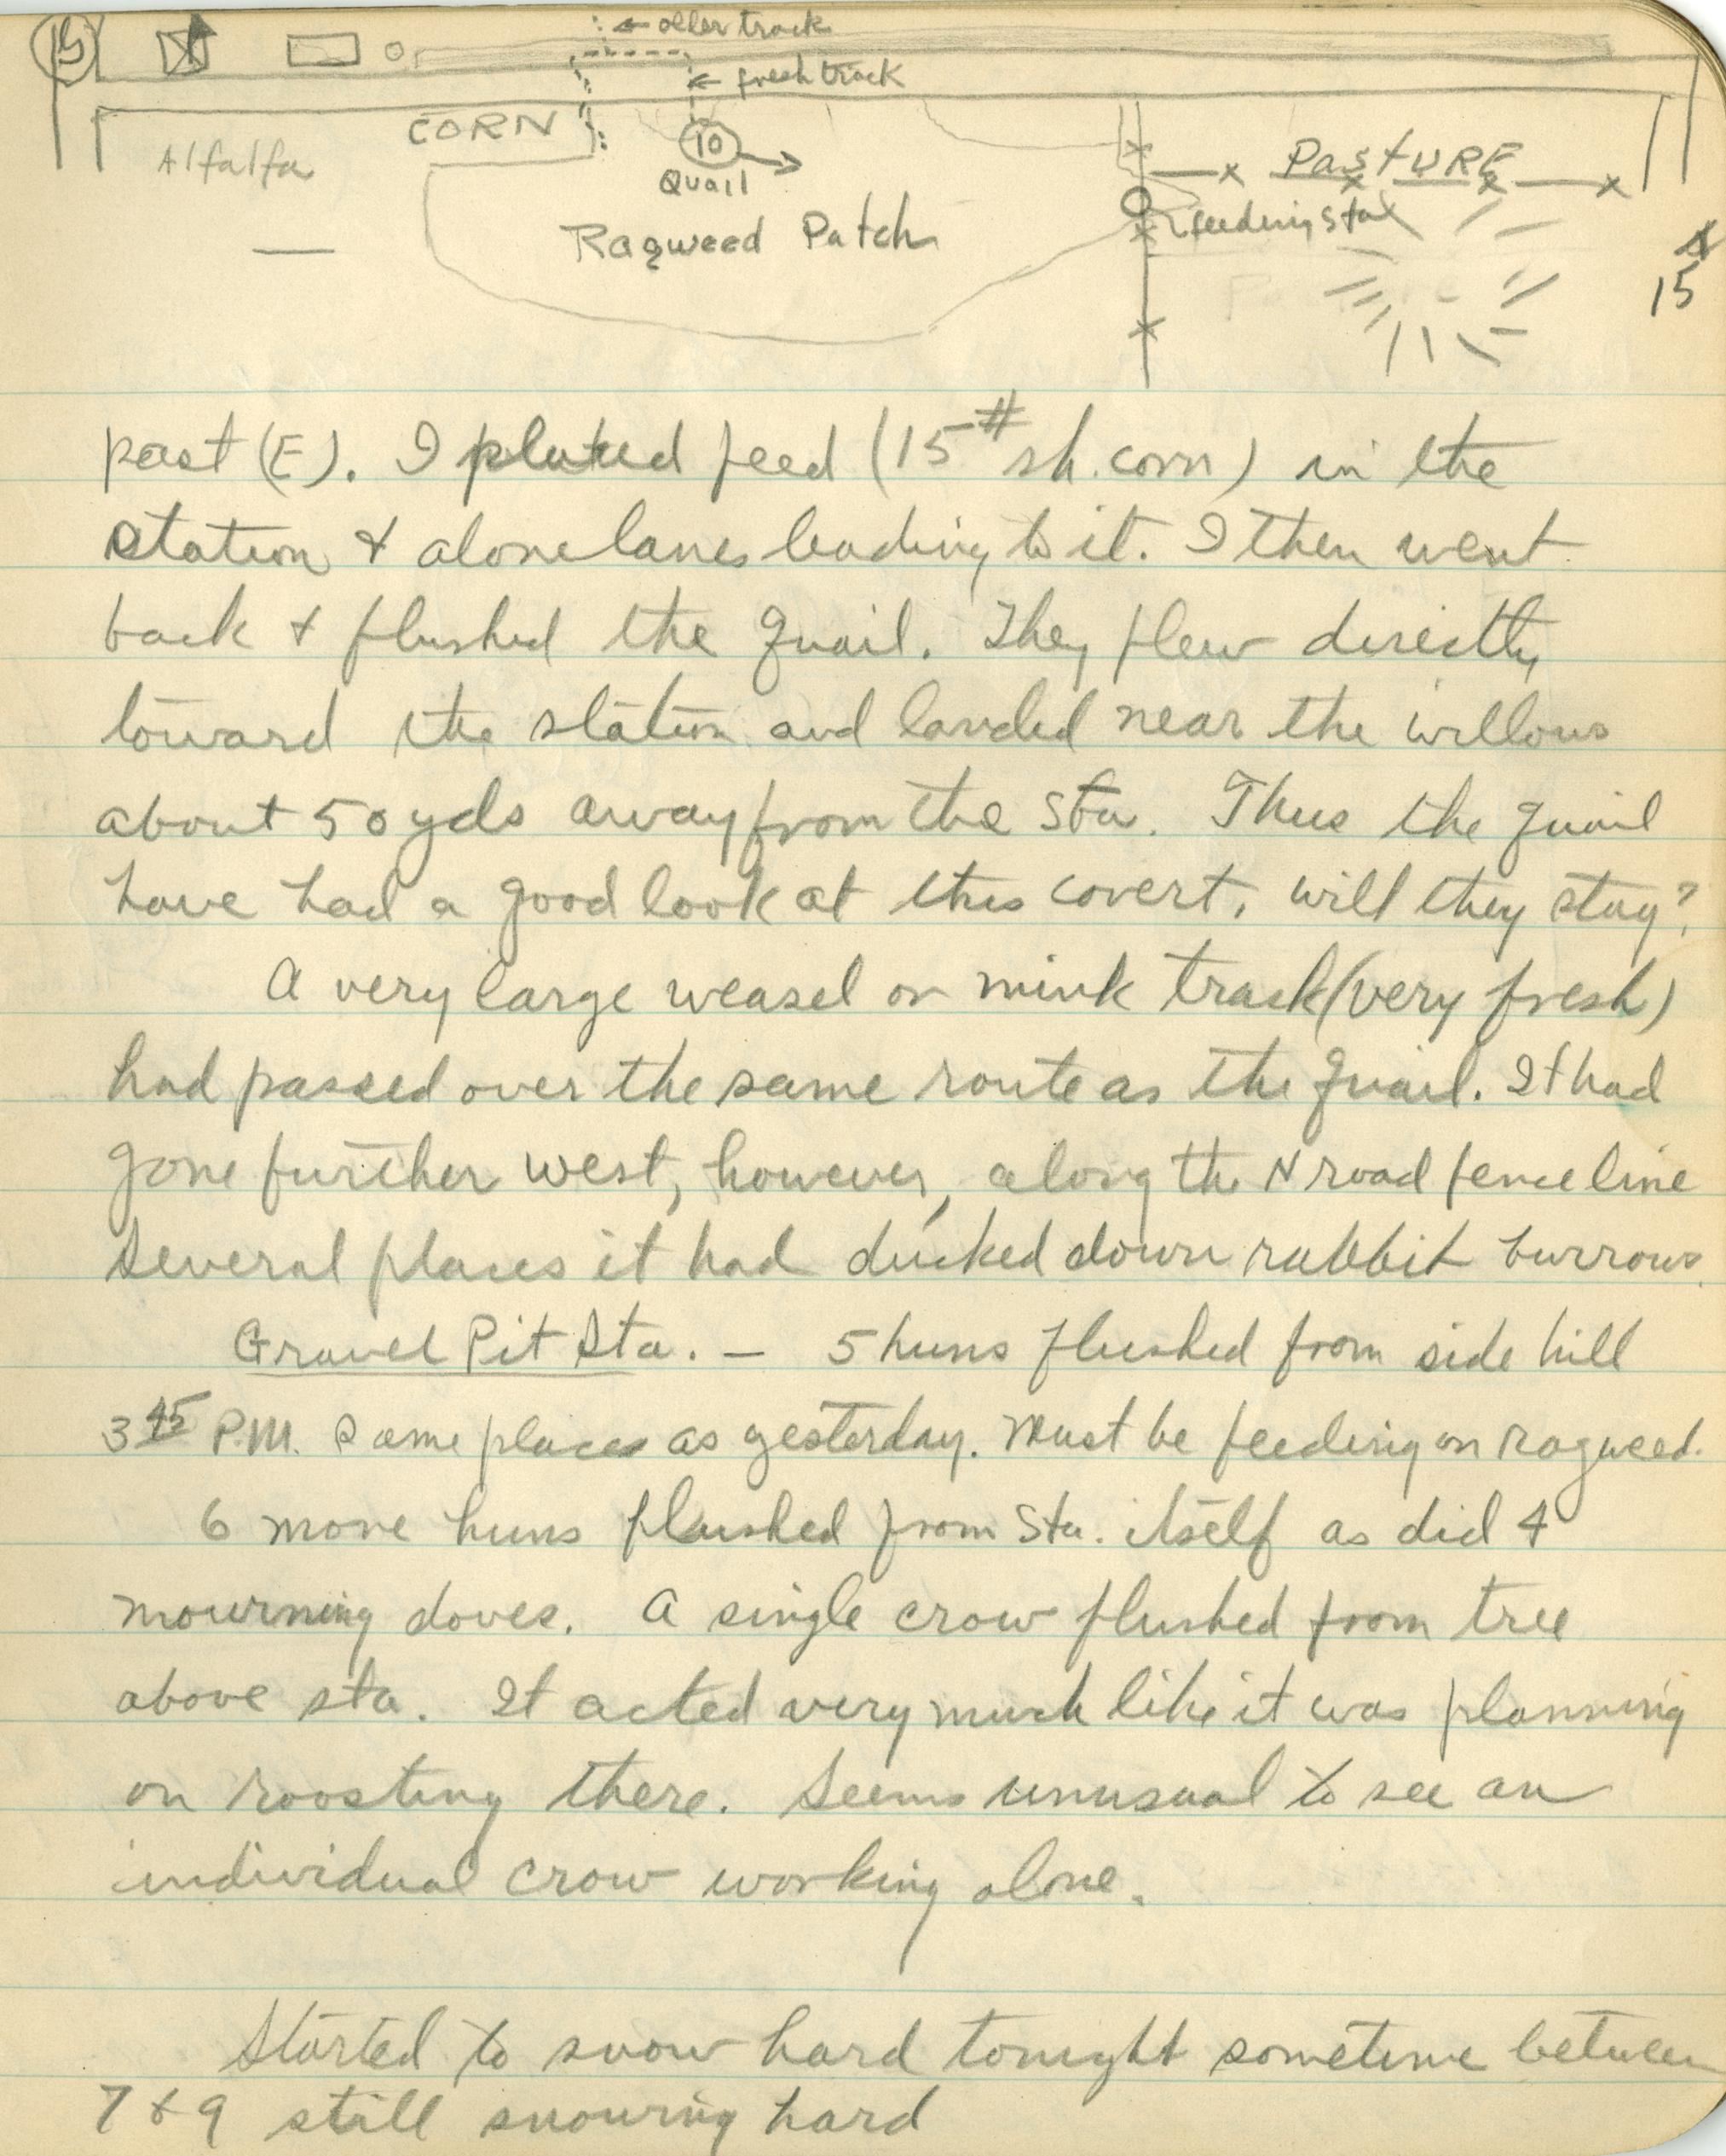 15
← older track
← fresh track
CORN
Alfalfa
10
Quail
PasTURE
feeding sta
Ragweed Patch
15
past (E). I placed feed (15# sh. corn) in the
station & alone lanes leading to it. I then went
back & flushed the quail. They flew directly
toward the station and landed near the willows
about 50 yds away from the sta. Thus the quail
have had a good look at this covert, will they stay?
A very large weasel or mink track (very fresh)
had passed over the same route as the quail. It had
gone further west, however, along the N road fence line
Several places it had ducked down rabbit burrows.
Gravel Pit Sta. - 5 huns flushed from side hill
3 45 P.M. Same places as yesterday. Must be feeding on ragweed.
6 more huns flushed from Sta. itself as did 4
mourning doves. A single crow flushed from tree
above sta. It acted very much like it was planning
on roosting there. Seems unusual to see an
individual crow working alone.
Started to snow hard tonight sometime between
7 & 9 still snowing hard